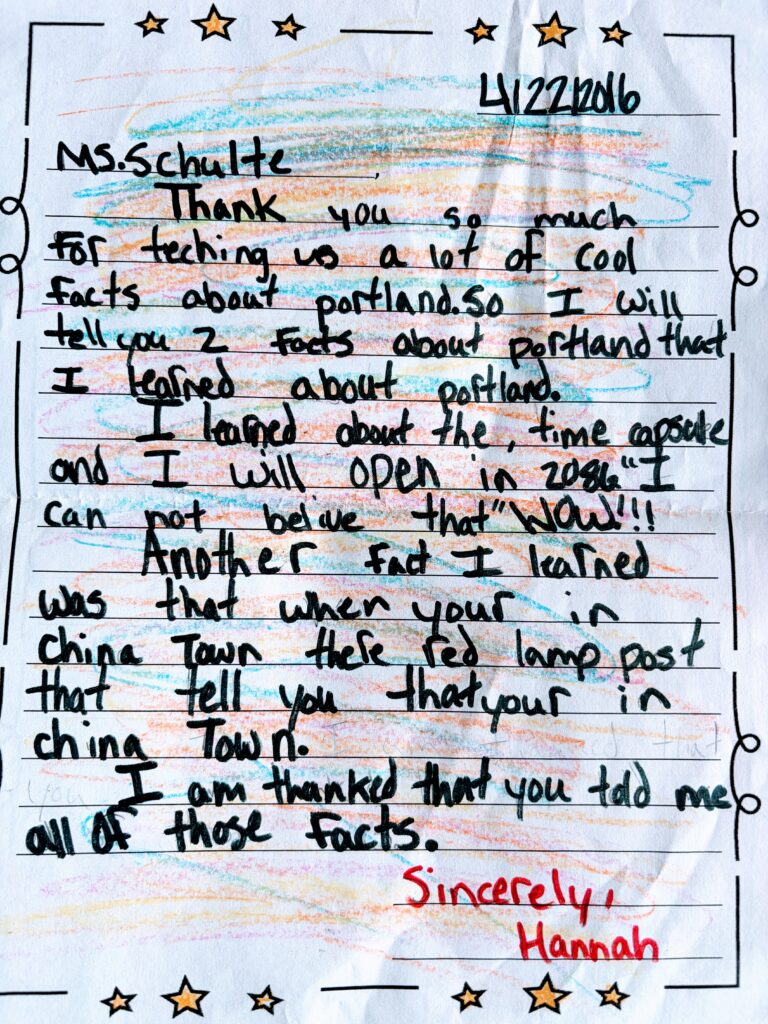 4/22/2016
Ms. Schulte,
Thank you so much
For teching us a lot of cool
facts about portland. So I will
tell you 2 facts about portland that
I learned about portland.
I learned about the, time capsule
and I will open in 2086 "I
can not belive that" WOW!!!
Another fact I learned
was that when your in
china Town there red lamp post
that tell you that your in
china Town.
I am thanked that you told me
all of those facts.
Sincerely,
Hannah